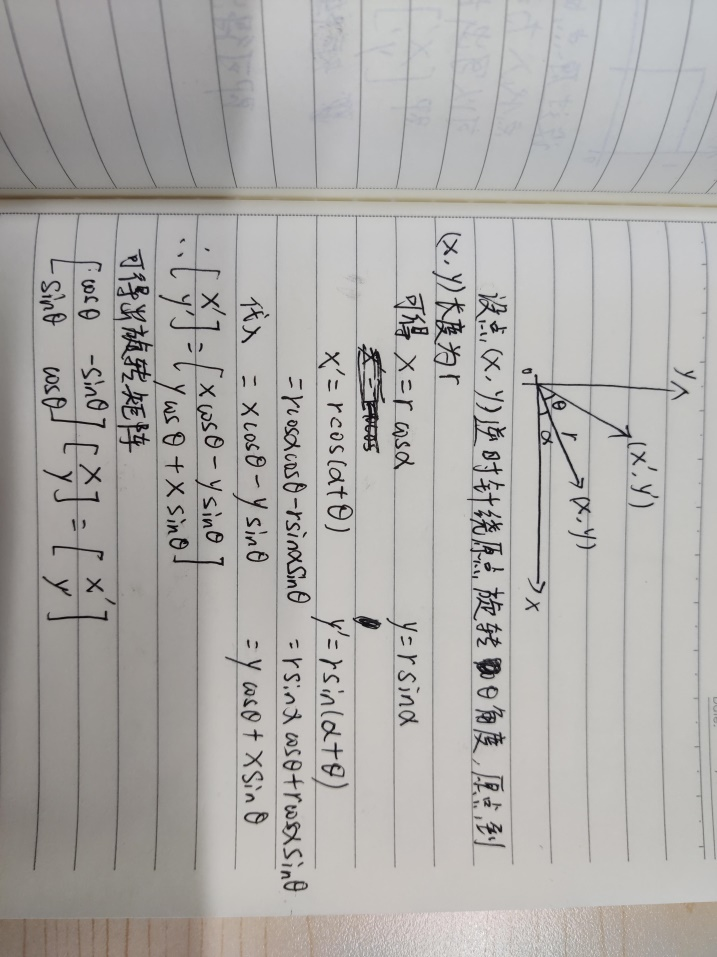 y
(x', y')
(x, y)
θ
r
α
0
x
设点(x, y)逆时针绕原点旋转θ角度,原点到
(x, y)长度为r
可得 x = r cosα y = r sinα
x' = r cos(α+θ) y' = r sin(α+θ)
= rcosαcosθ - rsinαsinθ = rsinα cosθ + rcosα sinθ
代入 = x cosθ - y sinθ = y cosθ + x sinθ
∴ [ x' ] = [ x cosθ - y sinθ ]
[ y' ] [ y cosθ + x sinθ ]
可得出旋转矩阵
[ cosθ -sinθ ] [ x ] = [ x' ]
[ sinθ cosθ ] [ y ] [ y' ]